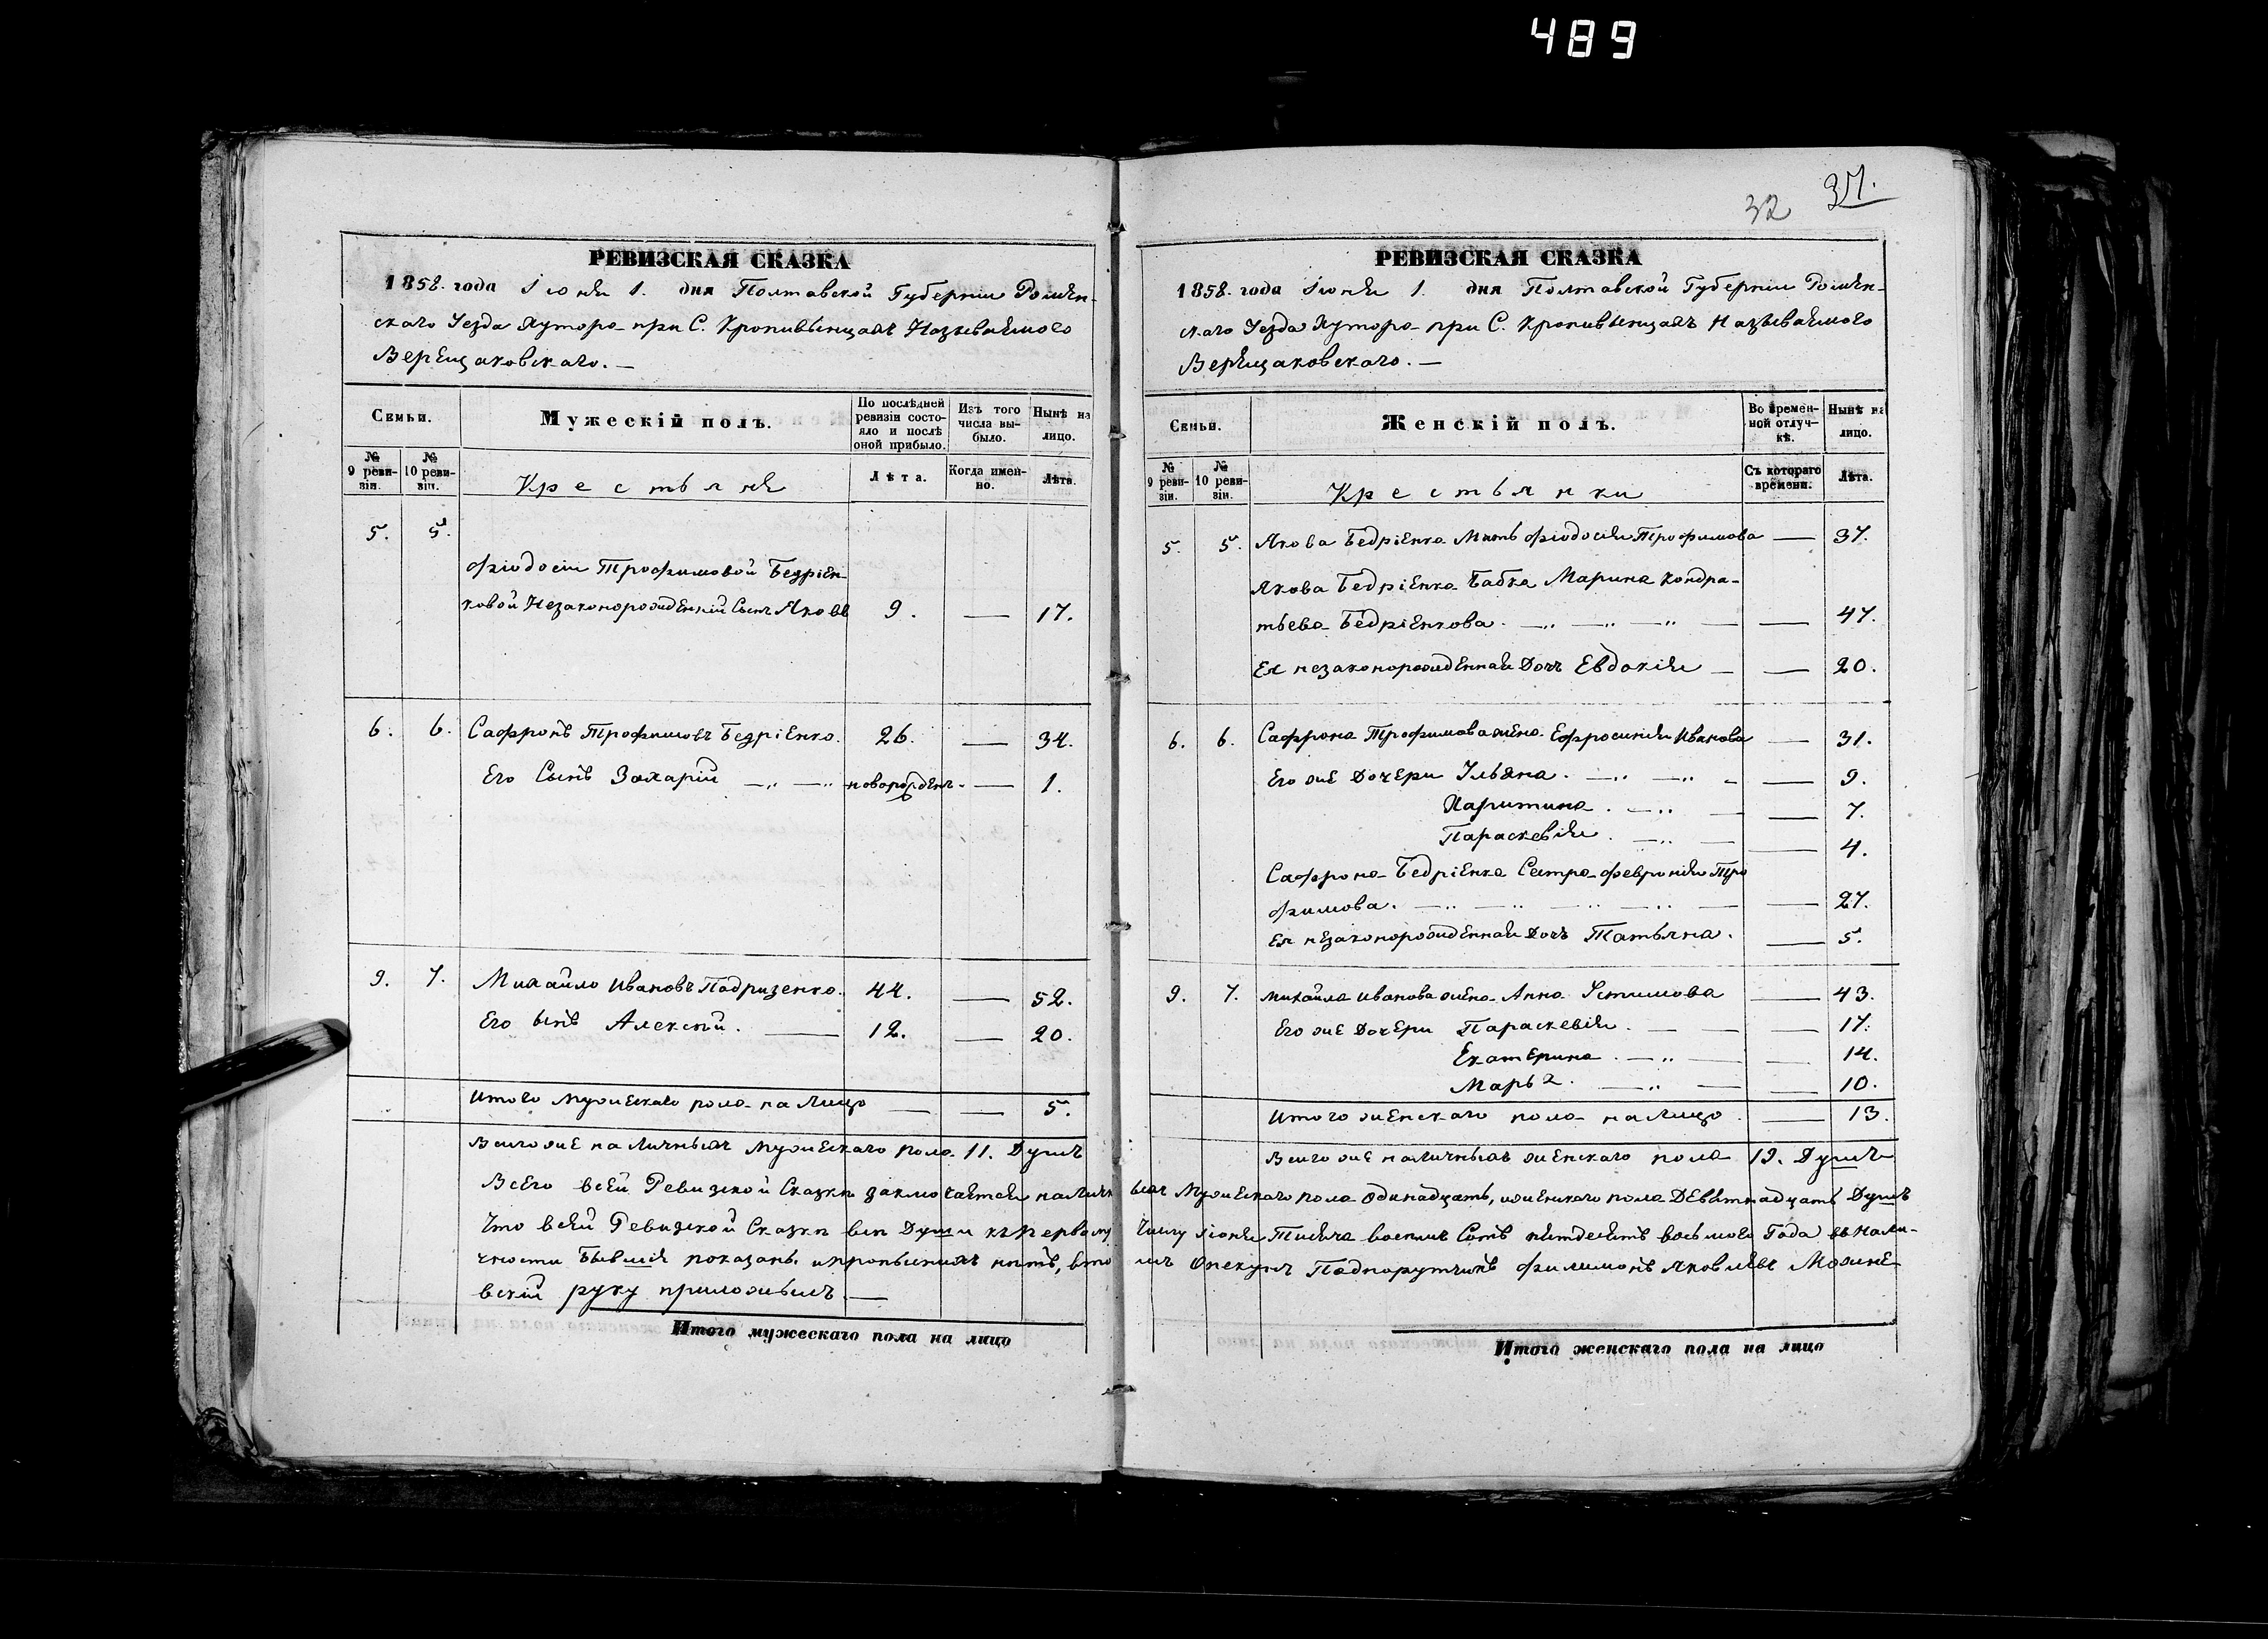 489
32 37.
РЕВИЗСКАЯ СКАЗКА
1858. года Іюня 1. дня Полтавской Губерніи Ромен-
скаго Уезда Хутора при С. Кропивынцахъ Называемого
Верещаковскаго. —
Семьи.
Мужескій полъ.
По послѣдней ревизіи состо-
яло и послѣ оной прибыло.
Изъ того числа вы-
было.
Нынѣ на лицо.
№ 9 реви-
зіи.
№ 10 реви-
зіи.
Крестьяне
Лѣта.
Когда имен-
но.
Лѣта.
5. 5.
Фіодосіи Трофимовой Бедріен-
ковой Незаконорожденій Сынъ Яковъ 9. — 17.
6. 6. Сафронъ Трофимовъ Бедріенко. 26. — 34.
Его Сынъ Захарій — новорожден. — 1.
9. 7. Михайло Ивановъ Падризенко. 44. — 52.
Его сынъ Алексѣй. — 12. — 20.
Итого Мужескаго пола на Лицо — — 5.
Всего же на Личныхъ Мужескаго пола 11. Душъ
РЕВИЗСКАЯ СКАЗКА
1858. года Іюня 1. дня Полтавской Губерніи Ромен-
скаго Уезда Хутора при С. Кропивынцахъ Называемого
Верещаковскаго. —
Семьи.
Женскій полъ.
Во времен-
ной отлуч-
кѣ.
Нынѣ на лицо.
№ 9 реви-
зіи.
№ 10 реви-
зіи.
Крестьянки
Съ котораго времени.
Лѣта.
5. 5. Якова Бедріенка Мать Фіодосія Трофимова — 37.
Якова Бедріенка Бабка Марина Кондра-
тьева Бедріенкова. — 47.
Ея незаконорожденная Дочъ Евдокія — — 20.
6. 6. Сафрона Трофимова жена Ефросинія Иванова — 31.
Его же Дочери Ульяна. — 9.
Харитина. — 7.
Параскевія. — 4.
Сафрона Бедріенка Сестра Февронія Тро
фимова. — 27.
Ея незаконорожденная Дочъ Татьяна. — 5.
9. 7. Михайла Иванова жена Анна Устимова — 43.
Его же Дочери Параскевія. — 17.
Екатерина. — 14.
Марья. — 10.
Итого женскаго пола на Лицо. — 13.
Всего же наличныхъ женскаго пола 19. Душъ
Всего всей Ревизкой Сказки заключается наличныхъ Мужескаго пола одинадцать, женскаго пола Девятнадцать Душъ
Что всей Ревизкой Сказки все Души къ Первому Числу Іюня Тисяча восемь Сотъ пятдесятъ восьмого Года въ Нали-
чности бывшія показаны и прописныхъ нѣтъ, въ томъ Опекунъ Подпорутчикъ Филимонъ ЯковлевъМожне-
вскій руку приложилъ. —
Итого мужескаго пола на лицо
Итого женскаго пола на лицо